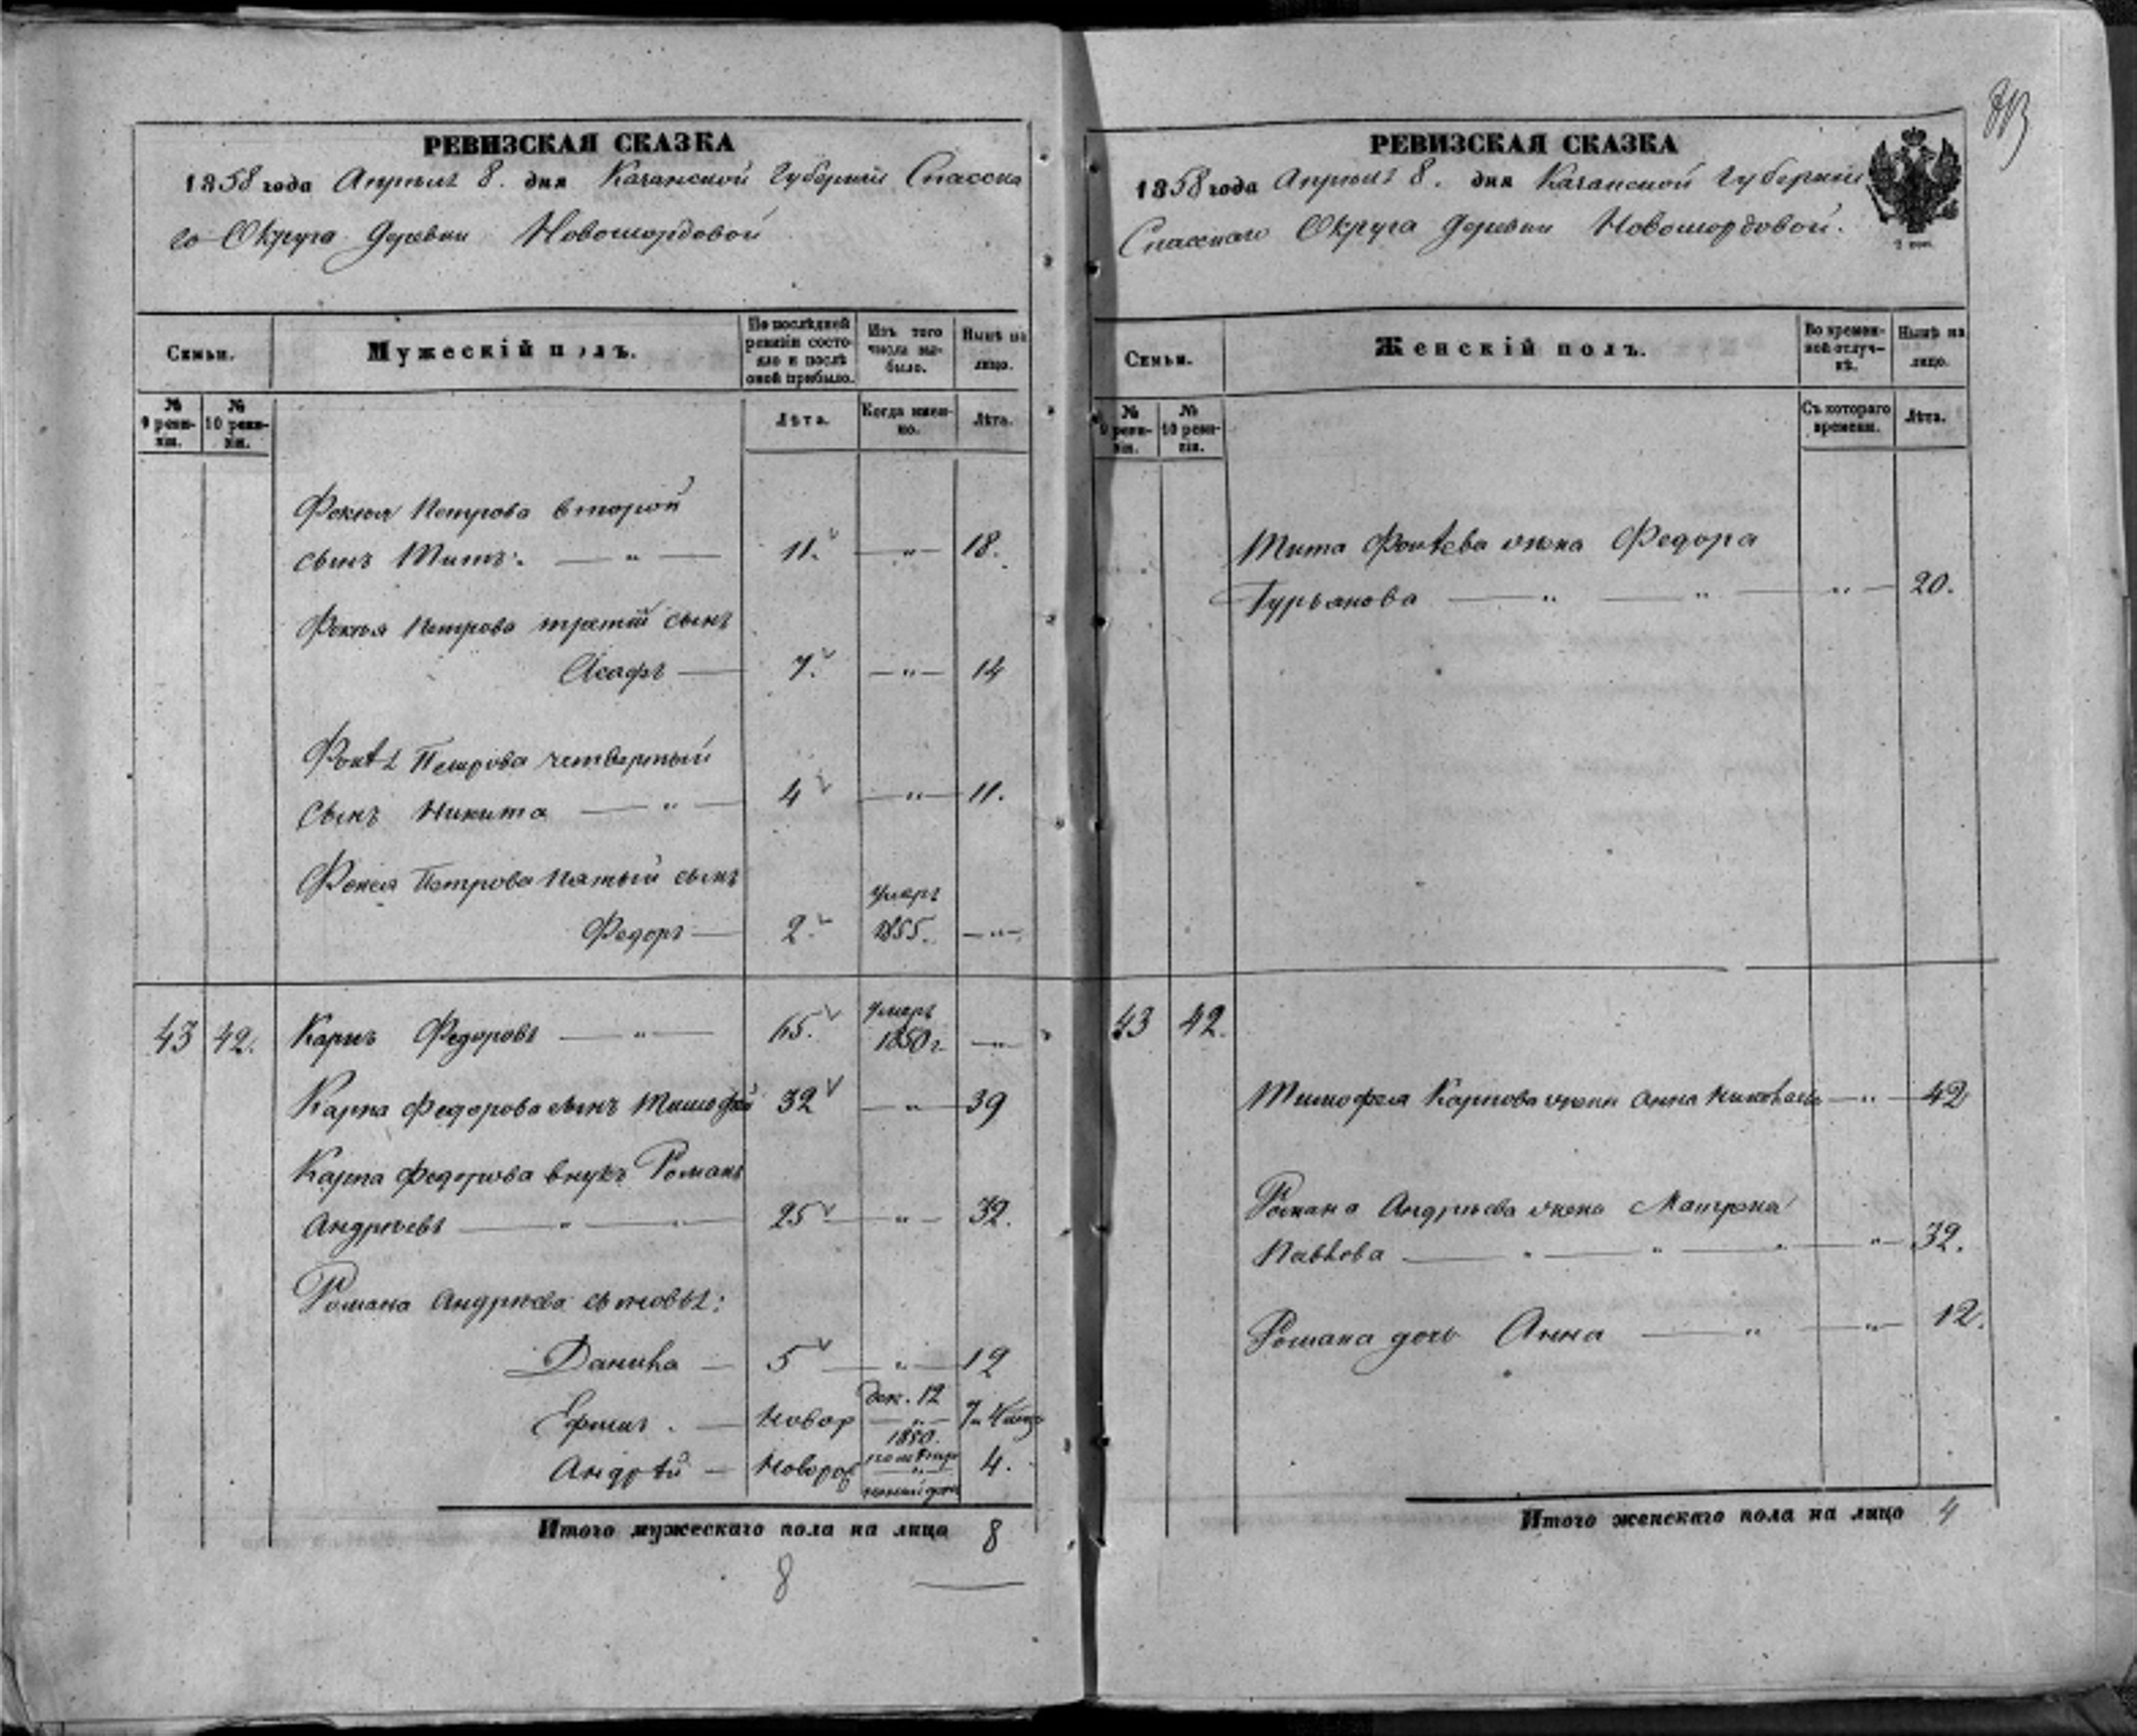 РЕВИЗСКАЯ СКАЗКА
1858 года Апреля 8. дня Казанской Губерніи Спасска
го Округа Деревни Новомордовой
Семьи.
Мужескій полъ.
По послѣдней ревизіи состояло и послѣ оной прибыло.
Изъ того числа выбыло.
Нынѣ на лицо.
№ 9 ревизіи.
№ 10 ревизіи.
Лѣта.
Когда именно.
Лѣта.
Фокея Петрова второй
сынъ Титъ. — " — 11. — " — 18.
Фокея Петрова третій сынъ
Асафъ — 7. — " — 14
Фокѣя Петрова четвертый
сынъ Никита — " — 4 — " — 11.
Фокея Петрова пятый сынъ
умеръ
Федоръ — 2. 1855. — " —
умеръ
43 42. Карпъ Федоровъ — " — 65. 1850 г. — " —
Карпа Федорова сынъ Тимофей 32 — " — 39
Карпа Федорова внукъ Романъ
Андреевъ — " — " — 25 — " — 32.
Романа Андреева сыновья:
Данила — 5 — " — 12
Ефимъ. — Новор дек. 12 — " — 1850.
Андрѣй — Новорож — " — 4.
Итого мужескаго пола на лицо 8
8
РЕВИЗСКАЯ СКАЗКА
1858 года Апреля 8. дня Казанской Губерніи
Спасскаго Округа Деревни Новомордовой.
Семьи.
Женскій полъ.
Во временной отлучкѣ.
Нынѣ на лицо.
№ 9 ревизіи.
№ 10 ревизіи.
Съ котораго времени.
Лѣта.
Тита Фокѣева жена Федора
Гурьянова — " — " — " — 20.
43 42.
Тимофея Карпова жена Анна — " — 42
Романа Андреева жена Матрена
Павлова — " — " — " — " — 32.
Романа дочь Анна — " — " — 12.
Итого женскаго пола на лицо 4